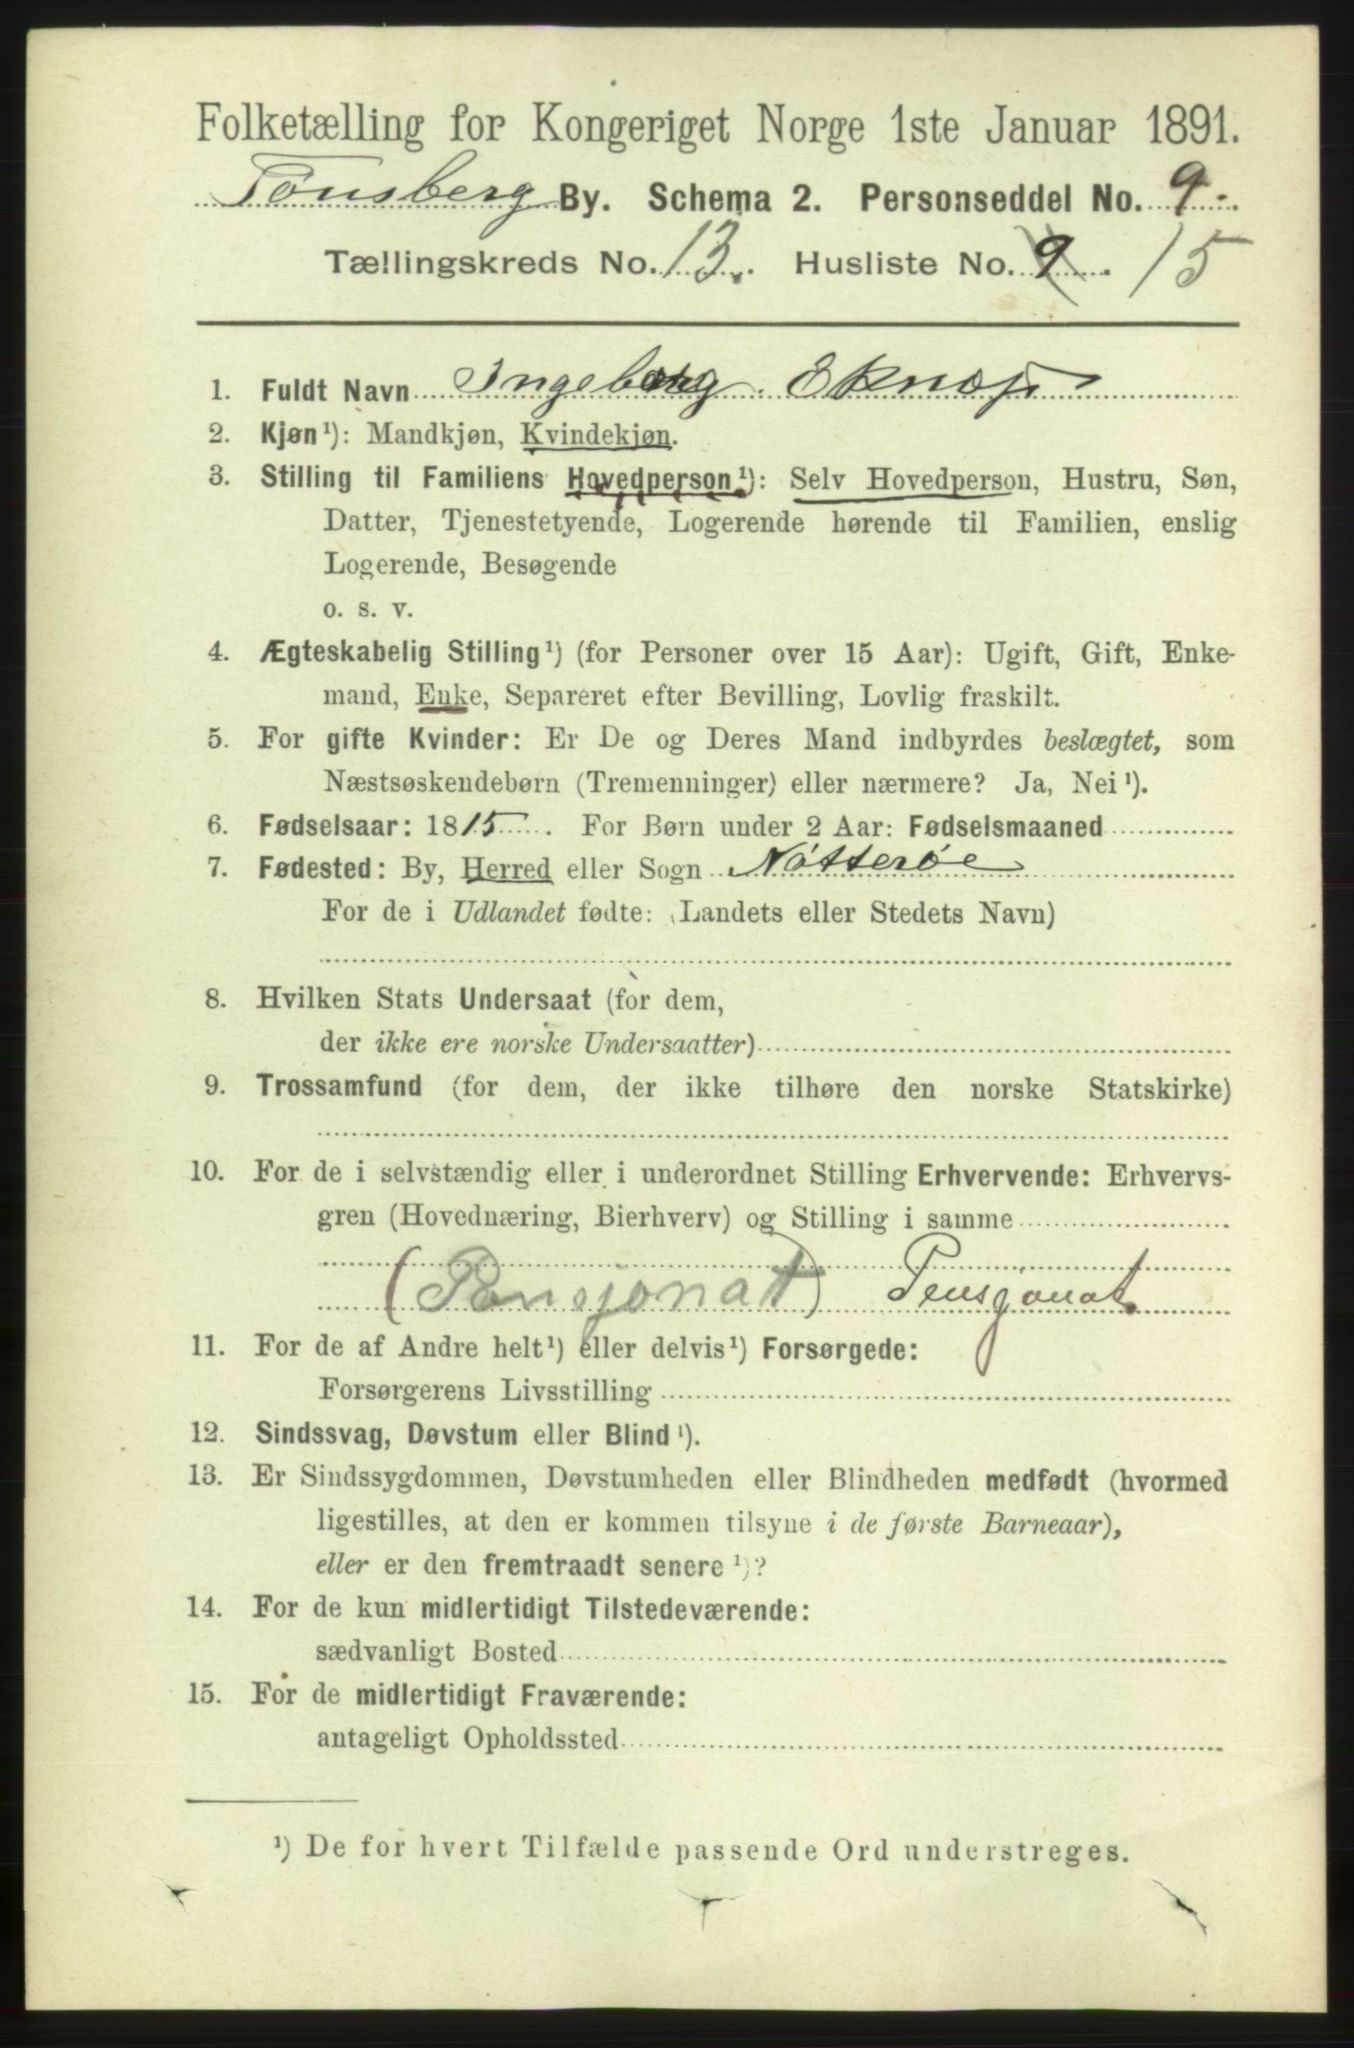 Folketælling for Kongeriget Norge 1ste Januar 1891.
Tönsberg By. Schema 2. Personseddel No. 9.
Tællingskreds No. 13. Husliste No. 9. 15
1. Fuldt Navn Ingeborg Eknæs
2. Kjøn¹): Mandkjøn, Kvindekjøn.
3. Stilling til Familiens Hovedperson¹): Selv Hovedperson, Hustru, Søn,
Datter, Tjenestetyende, Logerende hørende til Familien, enslig
Logerende, Besøgende
o. s. v.
4. Ægteskabelig Stilling¹) (for Personer over 15 Aar): Ugift, Gift, Enke-
mand, Enke, Separeret efter Bevilling, Lovlig fraskilt.
5. For gifte Kvinder: Er De og Deres Mand indbyrdes beslægtet, som
Næstsøskendebørn (Tremenninger) eller nærmere? Ja, Nei¹).
6. Fødselsaar: 1815. For Børn under 2 Aar: Fødselsmaaned
7. Fødested: By, Herred eller Sogn Nötteröe
For de i Udlandet fødte: (Landets eller Stedets Navn)
8. Hvilken Stats Undersaat (for dem,
der ikke ere norske Undersaatter)
9. Trossamfund (for dem, der ikke tilhøre den norske Statskirke)
10. For de i selvstændig eller i underordnet Stilling Erhvervende: Erhvervs-
gren (Hovednæring, Bierhverv) og Stilling i samme
(Pensjonat) Pensjonat.
11. For de af Andre helt¹) eller delvis¹) Forsørgede:
Forsørgerens Livsstilling
12. Sindssvag, Døvstum eller Blind¹).
13. Er Sindssygdommen, Døvstumheden eller Blindheden medfødt (hvormed
ligestilles, at den er kommen tilsyne i de første Barneaar),
eller er den fremtraadt senere¹)?
14. For de kun midlertidigt Tilstedeværende:
sædvanligt Bosted
15. For de midlertidigt Fraværende:
antageligt Opholdssted
¹) De for hvert Tilfælde passende Ord understreges.